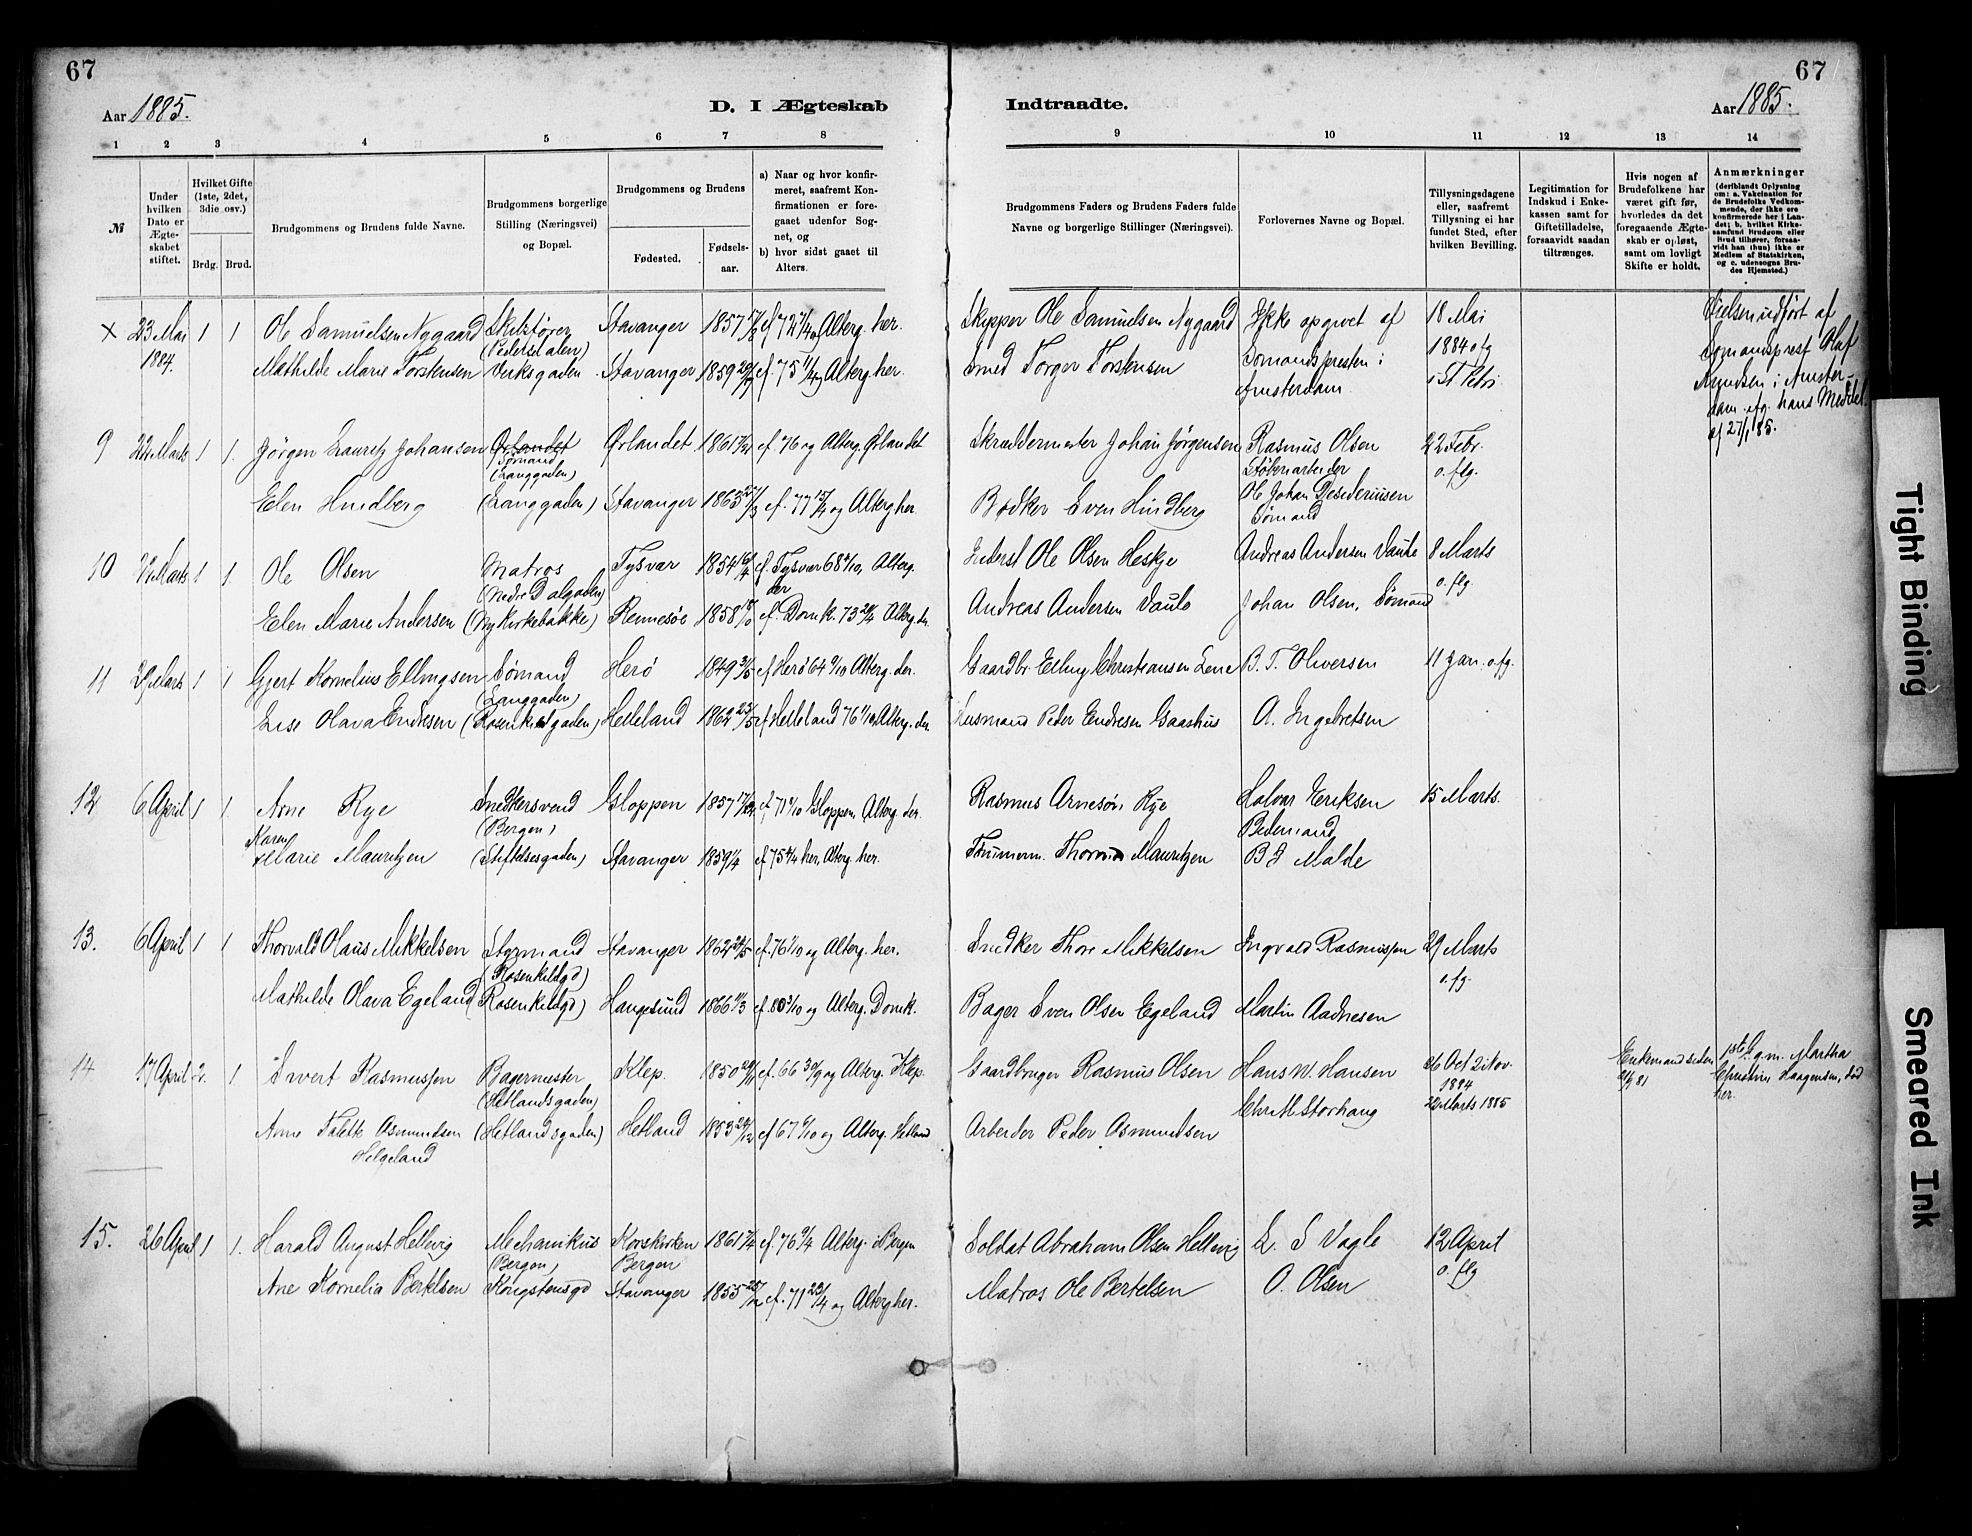 67
67
Aar 1885.
D. I Ægteskab
Indtraadte.
Aar 1885.
1 2 3 4 5 6 7 8 9 10 11 12 13 14
№
Under hvilken Dato er Ægteskabet stiftet.
Hvilket Gifte (1ste, 2det, 3die osv.)
Brdg. Brud.
Brudgommens og Brudens fulde Navne.
Brudgommens borgerlige Stilling (Næringsvei) og Bopæl.
Brudgommens og Brudens
Fødested.
Fødselsaar.
a) Naar og hvor konfirmeret, saafremt Konfirmationen er foregaaet udenfor Sognet, og
b) hvor sidst gaaet til Alters.
Brudgommens Faders og Brudens Faders fulde Navne og borgerlige Stillinger (Næringsvei).
Forlovernes Navne og Bopæl.
Tillysningsdagene eller, saafremt Tillysning ei har fundet Sted, efter hvilken Bevilling.
Legitimation for Indskud i Enkekassen samt for Giftetilladelse, forsaavidt saadan tiltrænges.
Hvis nogen af Brudefolkene har været gift før, hvorledes da det foregaaende Ægteskab er opløst, samt om lovligt Skifte er holdt.
Anmærkninger
(deriblandt Oplysning om: a. Vakcination for de Brudefolks Vedkommende, der ikke ere konfirmerede her i Landet; b. hvilket Kirkesamfund Brudgom eller Brud tilhører, forsaavidt han (hun) ikke er Medlem af Statskirken, og c. udensogns Brudes Hjemsted.)
x 23 Mai 1 1 Ole Samuelsen Nygaard Stavanger 1857 Alterg. her. Skipper Ole Samuelsen Nygaard Ikke opgivet af 18 Mai
1884. (Pedersdalen) Sømandspresten i 1884 ofg
Mathilde Marie Torstensen Verksgaden Stavanger 1859 Alterg. her. Smed Torger Torstensen Amsterdam i St. Petri
Vielsen udført af Sømandsprest Olaf
i Amsterdam efg. hans Meddel.
af 27/1 85.
9 22 Marts 1 1. Jørgen Lauritz Johansen Ørlandet Ørlandet 1861 cf. 76 og Alterg. Ørlandet Skræddermester Johan Jørgensen Rasmus Olsen 22 Febr.
Sømand (Langgaden) Støberiarbeider o. flg.
Elen Hindberg (Langgaden) Stavanger 1863 cf. 77 15/4 og Alterg her. Bødker Sven Hindberg Ole Johan Desideriusen
Sømand
10 22 Marts 1 1 Ole Olsen Matros Tysvær 1854 cf. Tysvær 68 4/10, Alterg. der Inderst Ole Olsen Heskje Andreas Andersen Vaule 8 Marts
(Nedre Dalgaden) o. flg
Elen Marie Andersen (Ny Kirkebakke) Rennesøe 1858 cf. Domk. 73 20/4 Alterg. der. Andreas Andersen Vaule Johan Olsen, Sømand
11 29 Marts 1 1 Gjert Kornelius Ellingsen Sømand Herø 1849 cf Herø 64 9/10 Alterg. der. Gaardbr. Elling Christiansen Lene B. T. Oliversen 11 Jan. ofg.
(Langgaden)
Lise Olava Endresen (Rosenkildgaden) Helleland 1862 cf. Helleland 76 1/10 Alterg. der Husmand Peder Endresen Gaashus A. Ingebretsen
12 6 April 1 1. Arne Rye Snedkersvend Gloppen 1857 cf. 71 Gloppen, Alterg. der. Rasmus Arnesøn Rye Halvor Eriksen 15 Marts.
(Bergen) Bedemand
Karen Marie Mauritzen (Stiftelsesgaden) Stavanger 1859 cf. 75 4/4 her, Alterg. her. Tømmerm. Mauritzen B J Malde
13. 6 April 1 1 Thorvald Olaus Mikkelsen Styrmand Stavanger 1862 cf. 76 1/10 og Alterg. her. Snedker Thore Mikkelsen Ingvald Rasmussen 29 Marts
(Rosenkildgd) o. fg.
Mathilde Olava Egeland (Rosenkildgd) Haugesund 1866 cf. 80 3/10 og Alterg. Domk. Bager Sven Olsen Egeland Martin Aadnesen
14 17 April 2. 1 Sivert Rasmussen Bagermester Klep. 1850 cf. 66 30/9 og Alterg. Klep. Gaardbruger Rasmus Olsen Hans W. Hansen 26 Oct 2 Nov. Enkemand siden 1ste G. g.m. Martha
(Hetlandsgaden) 1884 81 Christine Haagensen, død
Chr. M. Storhaug 22 Marts 1885 her.
Anne Talette Asmundsen (Hetlandsgaden) Hetland 1853 cf 67 1/10 og Alterg. Hetland Arbeider Peder Asmundsen
Helgeland
15. 26 April 1 1. Harald August Hellevig Mechanikus Korskirken 1861 cf. 76 9/4 Alterg. i Bergen Soldat Abraham Olsen Hellevig L. S Vagle 12 April
(Bergen) Bergen o. flg
Ane Kornelia Bertelsen Kongstensgd Stavanger 1855 cf. 71 23/4 og Alterg her. Matros Ole Bertelsen O. Olsen
Tight Binding
Smeared Ink